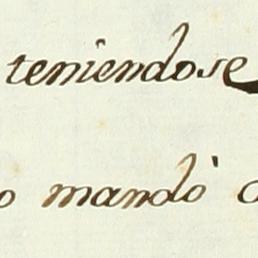 teniendose
o mandó